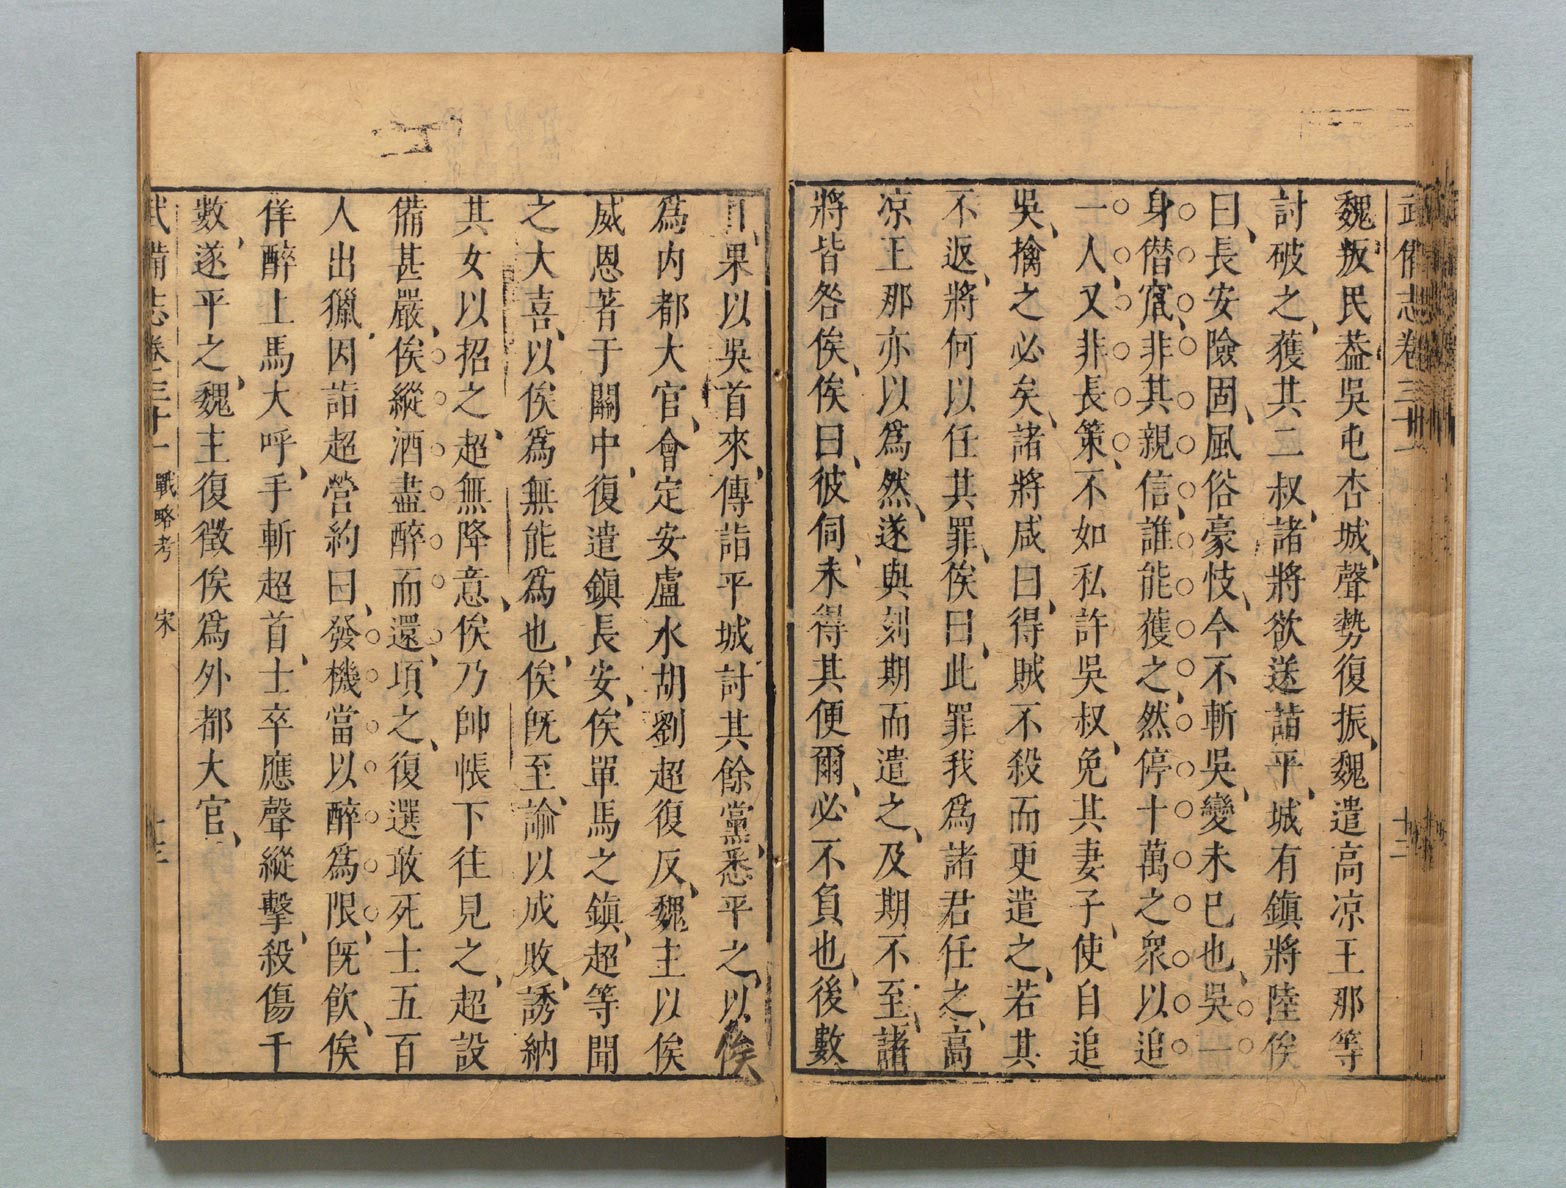 武備志卷三十一
十二
魏叛民葢吳屯杏城聲勢復振魏遣高凉王那等
討破之獲其二叔諸將欲送詣平城有鎮將陸俟
曰長安險固風俗豪忮今不斬吳變未已也吳一
身僭竄非其親信誰能獲之然停十萬之衆以追
一人又非長策不如私許吳叔免其妻子使自追
吳擒之必矣諸將咸曰得賊不殺而更遣之若其
不返將何以任其罪俟曰此罪我爲諸君任之高
凉王那亦以爲然遂與刻期而遣之及期不至諸
將皆咎俟俟曰彼伺未得其便爾必不負也後數
日果以吳首來傳詣平城討其餘黨悉平之以俟
爲内都大官會定安盧水胡劉超復反魏主以俟
威恩著于關中復遣鎮長安俟單馬之鎮超等聞
之大喜以俟爲無能爲也俟旣至諭以成敗誘納
其女以招之超無降意俟乃帥帳下往見之超設
備甚嚴俟縱酒盡醉而還頃之復選敢死士五百
人出獵因詣超營約曰發機當以醉爲限旣飲俟
佯醉上馬大呼手斬超首士卒應聲縱擊殺傷千
數遂平之魏主復徵俟爲外都大官
武備志卷三十一 戰略考 宋 十三